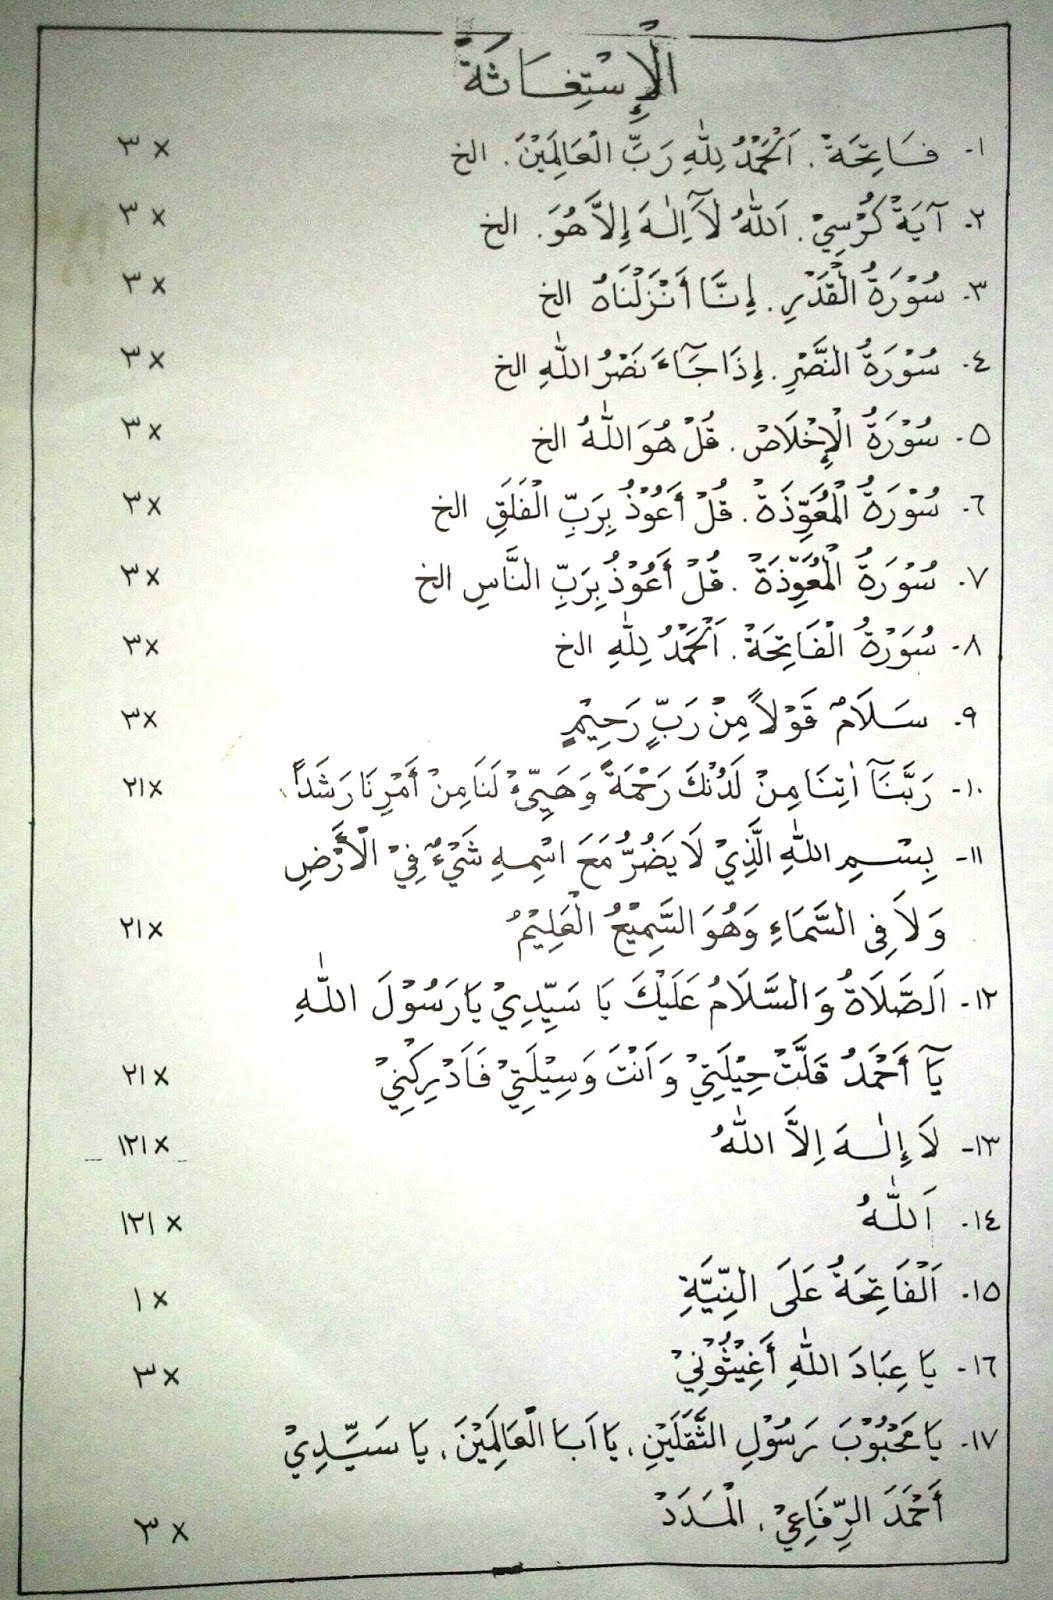 الْإِسْتِغَاثَةُ
١- فَاتِحَةْ. اَلْحَمْدُ لِلّٰهِ رَبِّ الْعَالَمِيْنَ. الخ × ٣
٢- آيَةْ كُرْسِيْ. اَللّٰهُ لَآ اِلٰهَ إِلاَّ هُوَ. الخ × ٣
٣- سُوْرَةُ الْقَدْرِ. إِنَّا أَنْزَلْنَاهُ الخ × ٣
٤- سُوْرَةُ النَّصْرِ. إِذَا جَآءَ نَصْرُ اللّٰهِ الخ × ٣
٥- سُوْرَةُ الْإِخْلَاصْ. قُلْ هُوَ اللّٰهُ الخ × ٣
٦- سُوْرَةُ الْمُعَوِّذَةْ. قُلْ أَعُوْذُ بِرَبِّ الْفَلَقِ الخ × ٣
٧- سُوْرَةُ الْمُعَوِّذَةْ. قُلْ أَعُوْذُ بِرَبِّ النَّاسِ الخ × ٣
٨- سُوْرَةُ الْفَاتِحَةْ. اَلْحَمْدُ لِلّٰهِ الخ × ٣
٩- سَلَامٌ قَوْلاً مِنْ رَبٍّ رَحِيْمٍ × ٣
١٠- رَبَّنَآ اٰتِنَا مِنْ لَدُنْكَ رَحْمَةً وَهَيِّئْ لَنَا مِنْ أَمْرِنَا رَشَدًا. × ٢١
١١- بِسْمِ اللّٰهِ الَّذِيْ لَا يَضُرُّ مَعَ اسْمِهِ شَيْءٌ فِيْ الْأَرْضِ
وَلاَ فِى السَّمَاءِ وَهُوَ السَّمِيْعُ الْعَلِيْمُ × ٢١
١٢- اَلصَّلَاةُ وَالسَّلَامُ عَلَيْكَ يَا سَيِّدِيْ يَا رَسُوْلَ اللّٰهِ
يَآ أَحْمَدُ قَلَّتْ حِيْلَتِيْ وَاَنْتَ وَسِيْلَتِيْ فَاَدْرِكْنِيْ × ٢١
١٣- لَا إِلٰهَ اِلاَّ اللّٰهُ × ١٢١
١٤- اَللّٰهُ × ١٢١
١٥- اَلْفَاتِحَةُ عَلَى النِّيَّةِ × ١
١٦- يَا عِبَادَ اللّٰهِ أَغِيْثُوْنِيْ × ٣
١٧- يَا مَحْبُوْبَ رَسُوْلِ الثَّقَلَيْنِ. يَا اَبَا الْعَالَمِيْنَ. يَا سَيِّدِيْ
أَحْمَدَ الرِّفَاعِيْ. الْمَدَدْ × ٣